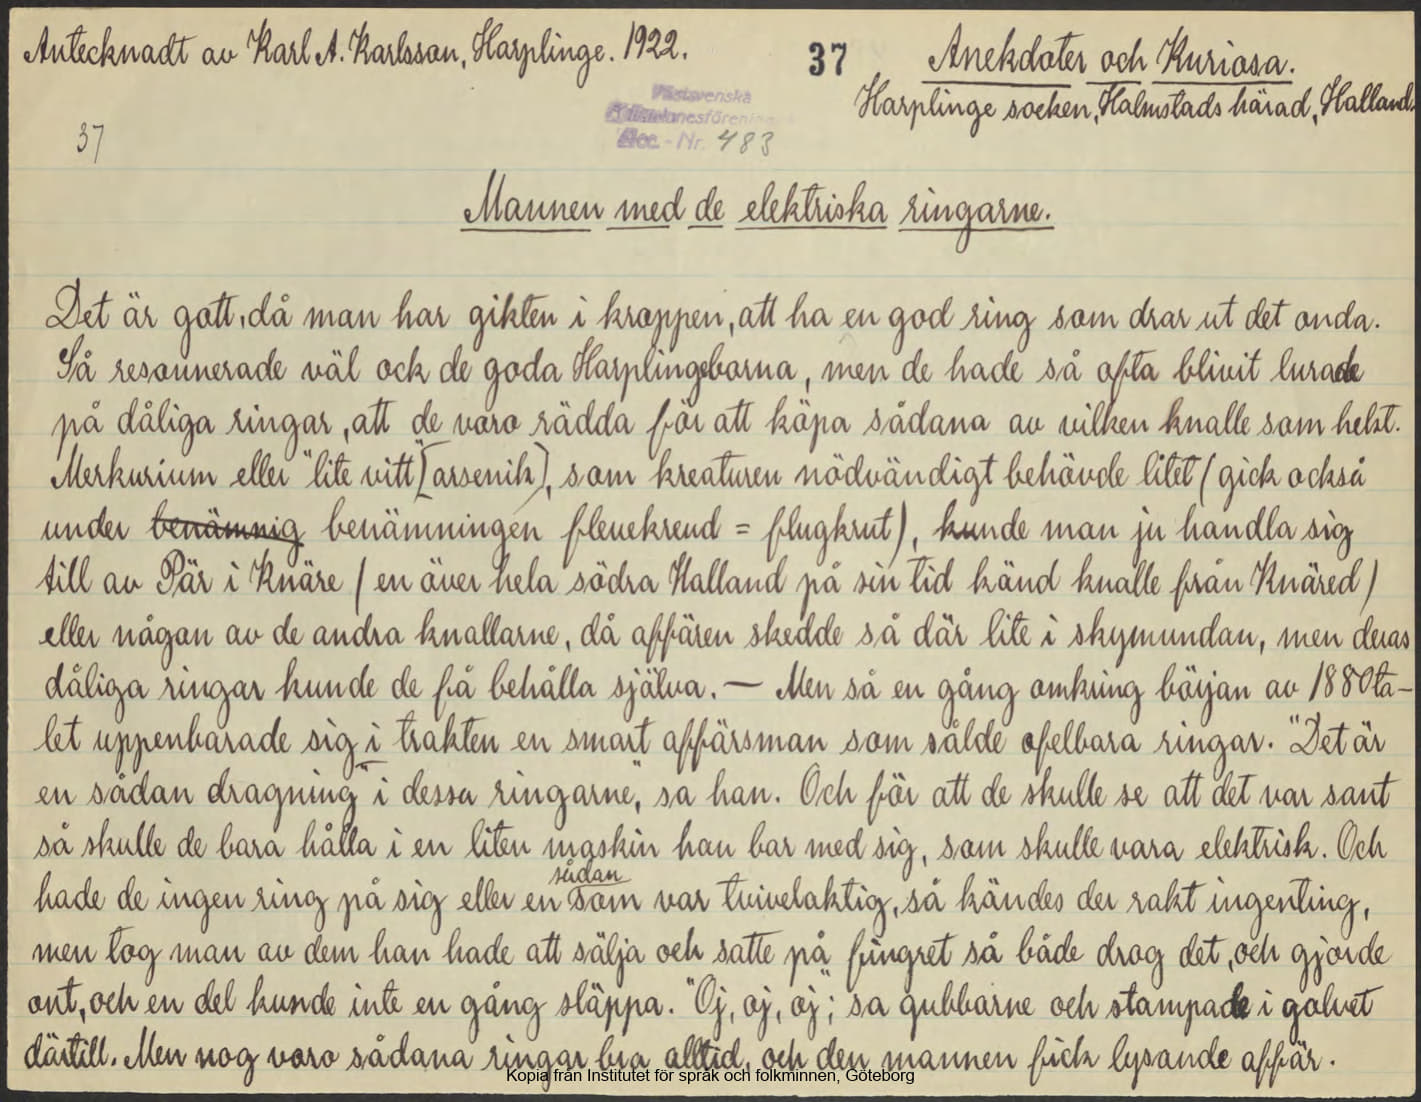 Antecknadt av Karl A. Karlsson, Harplinge. 1922.
37
Anekdoter och Kuriosa.
Harplinge socken, Halmstads härad, Halland.
Västsvenska
Folkminnesförening
Acc. - Nr. 483
37
Mannen med de elektriska ringarne.
Det är gott, då man har gikten i kroppen, att ha en god ring som drar ut det onda.
Så resonnerade väl ock de goda Harplingeborna, men de hade så ofta blivit lurade
på dåliga ringar, att de voro rädda för att köpa sådana av vilken knalle som helst.
Merkurium eller "lite vitt" [arsenik], som kreaturen nödvändigt behövde litet (gick också
under benämnig benämningen fleuekreud = flugkrut), kunde man ju handla sig
till av Pär i Knäre (en över hela södra Halland på sin tid känd knalle från Knäred)
eller någon av de andra knallarne, då affären skedde så där lite i skymundan, men deras
dåliga ringar kunde de få behålla själva. — Men så en gång omkring början av 1880ta-
let uppenbarade sig i trakten en smart affärsman som sålde ofelbara ringar. "Det är
en sådan dragning" i dessa ringarne", sa han. Och för att de skulle se att det var sant
så skulle de bara hålla i en liten maskin han bar med sig, som skulle vara elektrisk. Och
sådan
hade de ingen ring på sig eller en som var tvivelaktig, så kändes der rakt ingenting,
men tog man av dem han hade att sälja och satte på fingret så både drog det, och gjorde
ont, och en del kunde inte en gång släppa. "Oj, oj, oj", sa gubbarne och stampade i golvet
därtill. Men nog voro sådana ringar bra alltid, och den mannen fick lysande affär.
Kopia från Institutet för språk och folkminnen, Göteborg